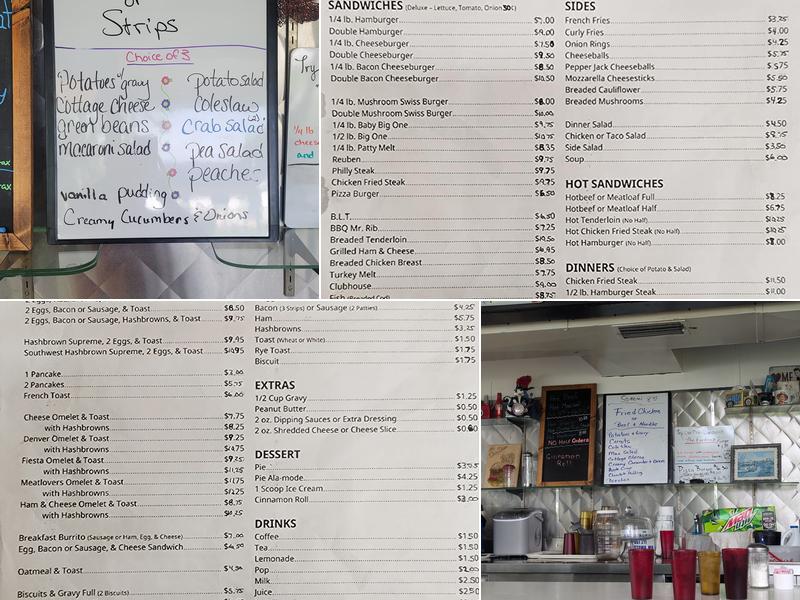 or
Strips
Choice of 3
Potatoes & gravy
Cottage cheese
green beans
macaroni salad
vanilla pudding
Creamy Cucumbers & Onions
potato salad
Coleslaw
Crab salad
pea salad
peaches
Try
1/4 lb
chees
and
SANDWICHES (Deluxe - Lettuce, Tomato, Onion 50¢)
1/4 lb. Hamburger $7.00
Double Hamburger $9.00
1/4 lb. Cheeseburger $7.50
Double Cheeseburger $9.50
1/4 lb. Bacon Cheeseburger $8.50
Double Bacon Cheeseburger $10.50
1/4 lb. Mushroom Swiss Burger $8.00
Double Mushroom Swiss Burger $10.00
1/4 lb. Baby Big One $9.75
1/2 lb. Big One $10.75
1/4 lb. Patty Melt $8.35
Reuben $9.75
Philly Steak $9.75
Chicken Fried Steak $9.75
Pizza Burger $8.50
B.L.T. $6.50
BBQ Mr. Rib $7.25
Breaded Tenderloin $10.50
Grilled Ham & Cheese $6.95
Breaded Chicken Breast $8.50
Turkey Melt $7.75
Clubhouse $9.00
Fish (Breaded Cod) $8.75
SIDES
French Fries $3.75
Curly Fries $4.00
Onion Rings $4.25
Cheeseballs $5.75
Pepper Jack Cheeseballs $5.75
Mozzarella Cheesesticks $5.50
Breaded Cauliflower $5.75
Breaded Mushrooms $4.25
Dinner Salad $4.50
Chicken or Taco Salad $9.75
Side Salad $3.50
Soup $6.00
HOT SANDWICHES
Hotbeef or Meatloaf Full $8.25
Hotbeef or Meatloaf Half $6.75
Hot Tenderloin (No Half) $10.25
Hot Chicken Fried Steak (No Half) $10.25
Hot Hamburger (No Half) $8.00
DINNERS (Choice of Potato & Salad)
Chicken Fried Steak $11.50
1/2 lb. Hamburger Steak $11.00
2 Eggs, Bacon or Sausage, & Toast $8.50
2 Eggs, Bacon or Sausage, Hashbrowns, & Toast $9.75
Hashbrown Supreme, 2 Eggs, & Toast $9.95
Southwest Hashbrown Supreme, 2 Eggs, & Toast $10.95
1 Pancake $3.00
2 Pancakes $5.75
French Toast $6.00
Cheese Omelet & Toast $7.75
with Hashbrowns $8.25
Denver Omelet & Toast $9.25
with Hashbrowns $10.75
Fiesta Omelet & Toast $9.75
with Hashbrowns $11.25
Meatlovers Omelet & Toast $11.75
with Hashbrowns $12.25
Ham & Cheese Omelet & Toast $8.75
with Hashbrowns $10.25
Breakfast Burrito (Sausage or Ham, Egg, & Cheese) $7.00
Egg, Bacon or Sausage, & Cheese Sandwich $6.50
Oatmeal & Toast $4.50
Biscuits & Gravy Full (2 Biscuits) $5.75
Bacon (3 Strips) or Sausage (2 Patties) $4.25
Ham $5.75
Hashbrowns $3.25
Toast (Wheat or White) $1.50
Rye Toast $1.75
Biscuit $1.75
EXTRAS
1/2 Cup Gravy $1.25
Peanut Butter $0.50
2 oz. Dipping Sauces or Extra Dressing $0.50
2 oz. Shredded Cheese or Cheese Slice $0.60
DESSERT
Pie
Pie Ala-mode $4.25
1 Scoop Ice Cream $1.25
Cinnamon Roll $3.00
DRINKS
Coffee $1.50
Tea $1.50
Lemonade $1.50
Pop $2.00
Milk $2.50
Juice $2.50
NO Half Orders
Cinnamon
Roll
Fried Chicken
or
Beef & Noodles
Potatoes & Gravy
Carrots
Coleslaw
Mac Salad
Cottage Cheese
Creamy Cucumber & Onion
Peaches
Pizza Burger
Mtn Dew
HOME